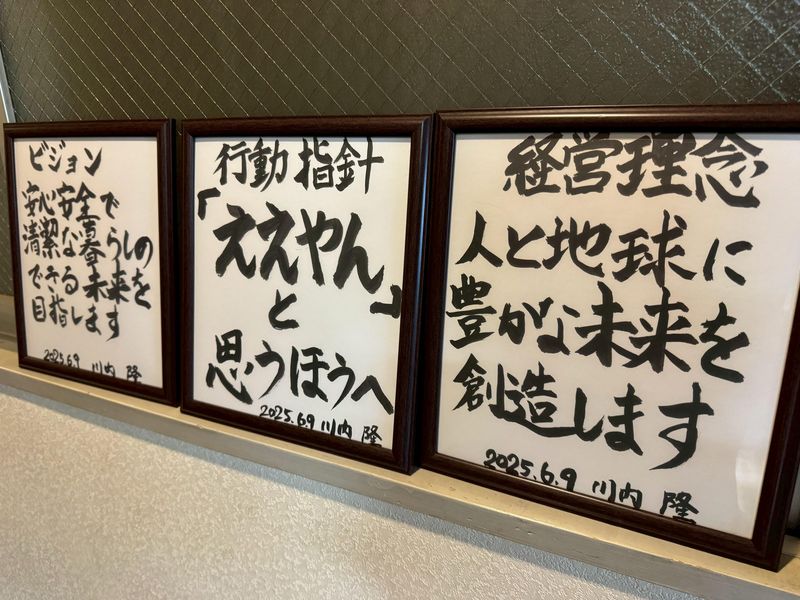 ビジョン
安心安全で
清潔な暮らしの
できる未来を
目指します
2025.6.9 川内 隆
行動指針
「ええやん」
と
思うほうへ
2025.6.9 川内 隆
経営理念
人と地球に
豊かな未来を
創造します
2025.6.9 川内 隆